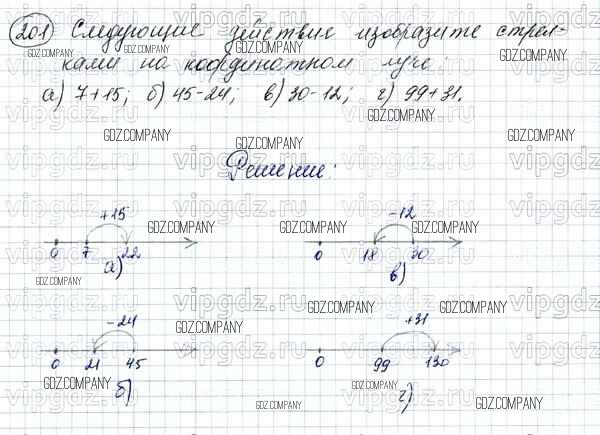 201 Следующие действие изобразите стрел-
ками на координатном луче:
а) 7+15; б) 45-24; в) 30-12; г) 99+31.
Решение:
+15
0 7 22
а)
-12
0 18 30
в)
-24
0 21 45
б)
+31
0 99 130
г)
GDZ.COMPANY
vipgdz.ru